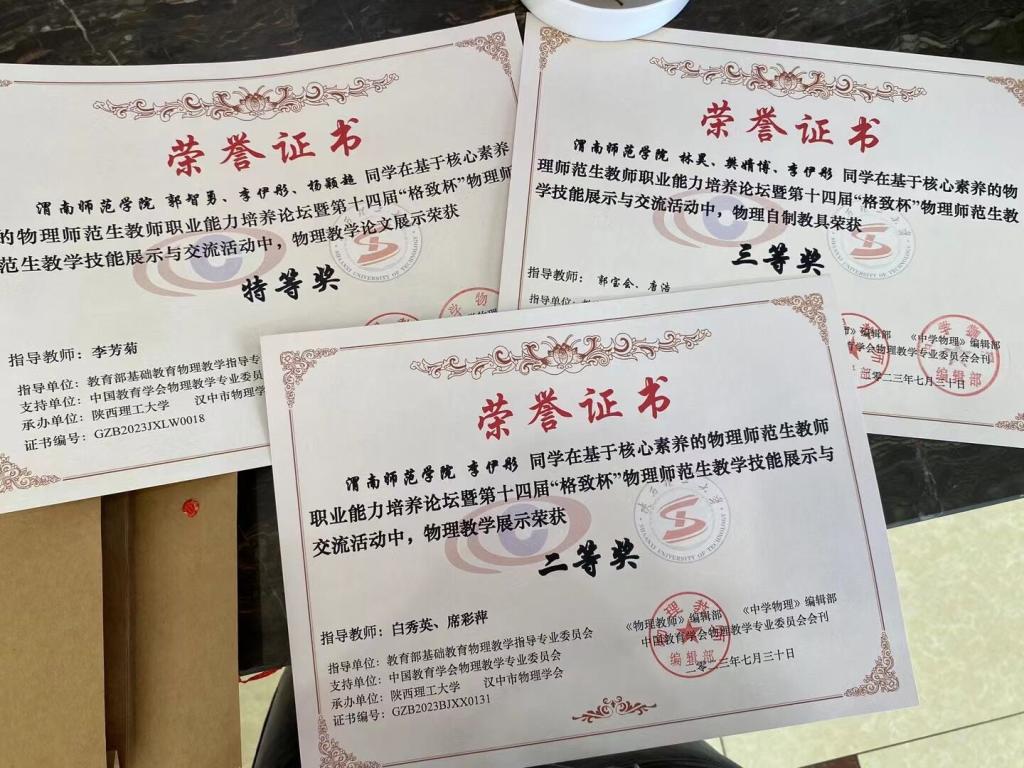 荣誉证书
渭南师范学院 郭智勇、李伊彤、杨颖超 同学在基于核心素养
的物理师范生教师职业能力培养论坛暨第十四届“格致杯”物理师
范生教学技能展示与交流活动中，物理教学论文展示荣获
特等奖
指导教师：李芳菊
指导单位：教育部基础教育物理教学指导专
支持单位：中国教育学会物理教学专业委
承办单位：陕西理工大学 汉中市物理学
证书编号：GZB2023JXLW0018
SHAANXI UNIVERSITY OF TECHNOLOGY
荣誉证书
渭南师范学院 林昊、樊婧博、李伊彤 同学在基于核心素养的物
理师范生教师职业能力培养论坛暨第十四届“格致杯”物理师范生教
学技能展示与交流活动中，物理自制教具荣获
三等奖
指导教师：郭宝会、唐洁
指导单位：
编辑部 《中学物理》编辑部
学会物理教学专业委员会会刊
二零二三年七月三十日
编辑部
荣誉证书
渭南师范学院 李伊彤 同学在基于核心素养的物理师范生教师
职业能力培养论坛暨第十四届“格致杯”物理师范生教学技能展示与
交流活动中，物理教学展示荣获
二等奖
SHAANXI UNIVERSITY OF TECHNOLOGY
指导教师：白秀英、席彩萍
指导单位：教育部基础教育物理教学指导专业委员会
支持单位：中国教育学会物理教学专业委员会
承办单位：陕西理工大学 汉中市物理学会
证书编号：GZB2023BJXX0131
《物理教师》编辑部 《中学物理》编辑部
中国教育学会物理教学专业委员会会刊
二零二三年七月三十日
物理教师
编辑部